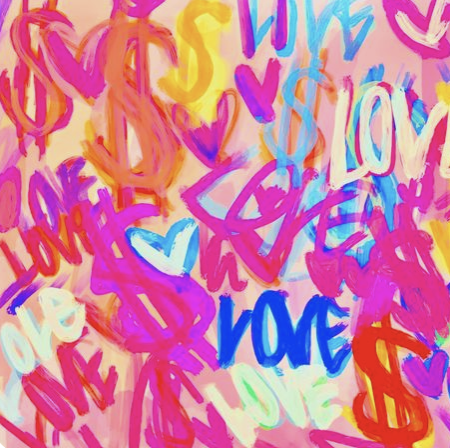 $
$
$
LOVE
$
LOVE
LOVE
LOVE
$
LOVE
LOVE
LOVE
LOVE
$
$
$